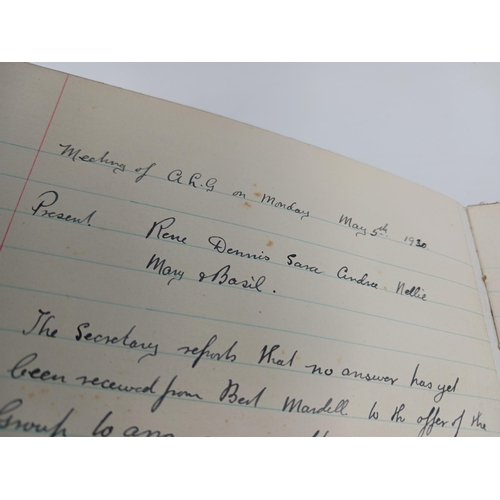 Meeting of A.L.G on Monday May 5th 1930.
Present. Rene Dennis Sara Andra Nellie
Mary & Basil.
The Secretary reports that no answer has yet
been received from Bert Mardell to the offer of the
Group to